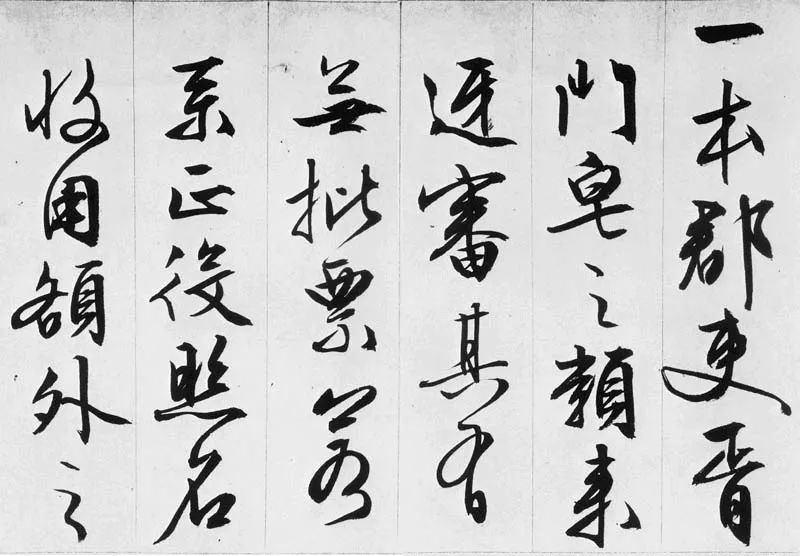 一本郡吏胥
門皂之類來
迓審其有
無批票若
系正役照名
收用額外之